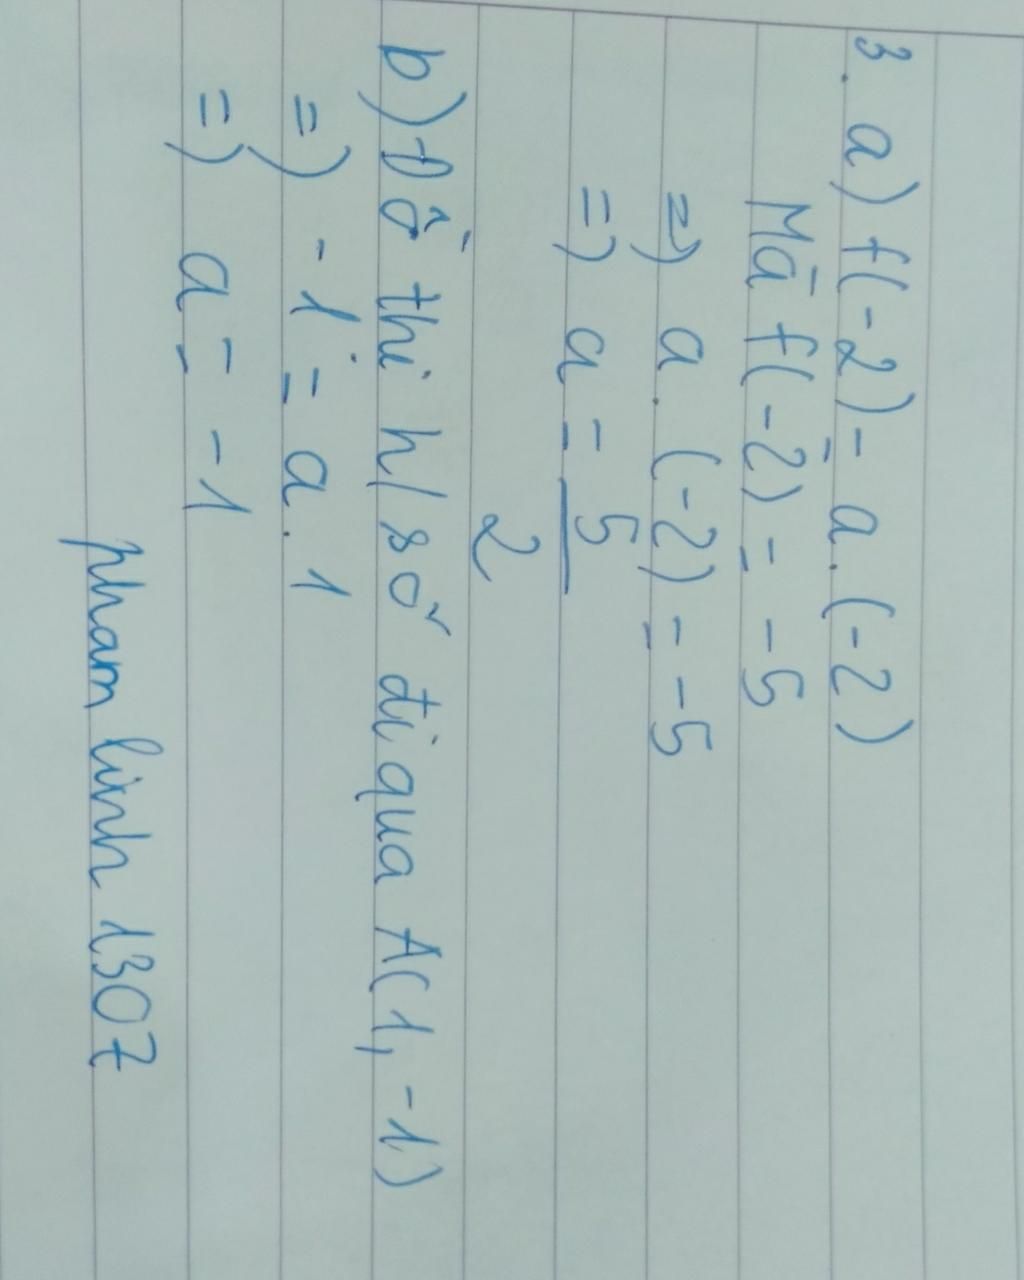 3. a) f(-2) = a.(-2)
Mà f(-2) = -5
=) a.(-2) = -5
=) a = 5
2
b) Đồ thị h/số đi qua A(1,-1)
=) -1 = a.1
=) a = -1
pham linh 1307